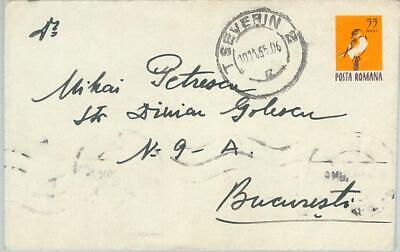 T. SEVERIN 2
55
BANI
POSTA ROMANA
Mihai Petrescu
Str Dinicu Golescu
No 9 - A.
București